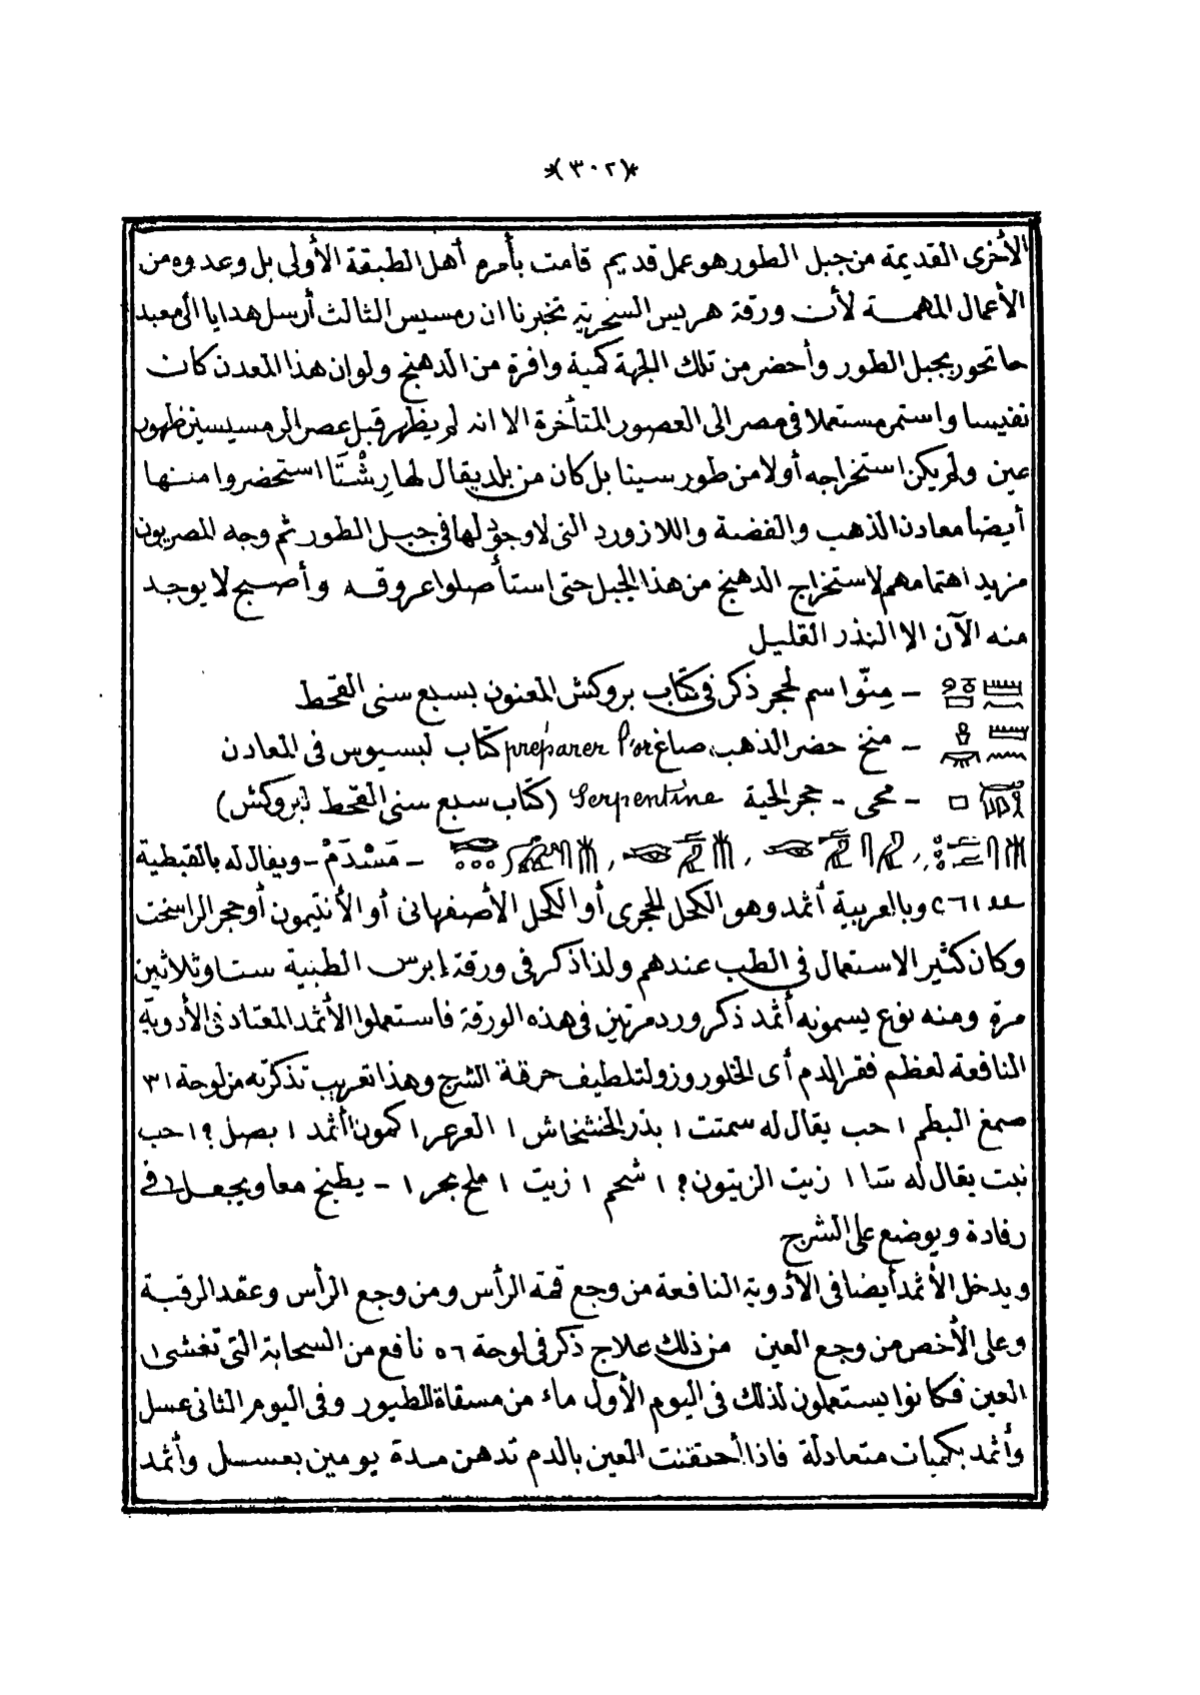 *(٣٠٢)*
الأخرى القديمة من جبل الطور هو عمل قديم قامت بأمرم أهل الطبقة الأولى بل وعدوه من
الأعمال المهمة لأن ورقة هريس السخرية تخبرنا ان رمسيس الثالث أرسل هدايا الى معبد
حاتحور بجبل الطور وأحضر من تلك الجهة كمية وافرة من الدهنج ولوان هذا المعدن كان
نفيسا واستمر مستعملا فى مصر الى العصور المتأخرة الا انه لم يظهر قبل عصر الرمسيسين ظهور
عين ولم يكن استخراجه أولا من طور سينا بل كان من بلد يقال لها رِشْتَا استحضروا منها
أيضا معادن الذهب والفضة واللازورد التى لا وجود لها فى جبل الطور ثم وجه المصريون
مزيد اهتمامهم لاستخراج الدهنج من هذا الجبل حتى استأصلوا عروقه وأصبح لا يوجد
منه الآن الا النذر القليل
– مِنّوا اسم لحجر ذكر فى كتاب بروكش المعنون بسبع سنى القحط
– منخ حضر الذهب، صاغ préparer l'or كتاب لبسيوس فى المعادن
– محى – حجر الحية Serpentine (كتاب سبع سنى القحط لبروكش)
– مَسْدَمْ – ويقال له بالقبطية
وبالعربية أثمد وهو الكحل الحجرى أو الكحل الأصفهانى أو الأنتيمون أو حجر الراسخت
وكان كثير الاستعمال فى الطب عندهم ولذا ذكر فى ورقة إبرس الطبية ستا وثلاثين
مرة ومنه نوع يسمونه أثمد ذكر ورد مرتين فى هذه الورقة فاستعملوا الأثمد المعتاد فى الأدوية
النافعة لعظم فقر الدم أى الخلوروز ولتلطيف حرقة الشرج وهذا تعريب تذكرته من لوحة ٣١
صمغ البطم ١ حب يقال له سمتت ١ بذر الخشخاش ١ العرعر ١ كمون ١ أثمد ١ بصل ؟ ١ حب
نبت يقال له تتا ١ زيت الزيتون ؟ ١ شحم ١ زيت ١ ملح بحر ١ – يطبخ معا ويجعل فى
رفادة ويوضع على الشرج
ويدخل الأثمد أيضا فى الأدوية النافعة من وجع قمة الرأس ومن وجع الرأس وعقد الرقبة
وعلى الأخص من وجع العين من ذلك علاج ذكر فى لوحة ٥٦ نافع من السحابة التى تغشى
العين فكانوا يستعملون لذلك فى اليوم الأول ماء من مسقاة للطيور وفى اليوم الثانى عسل
وأثمد بكميات متعادلة فاذا أحتقنت العين بالدم تدهن مدة يومين بعسل وأثمد